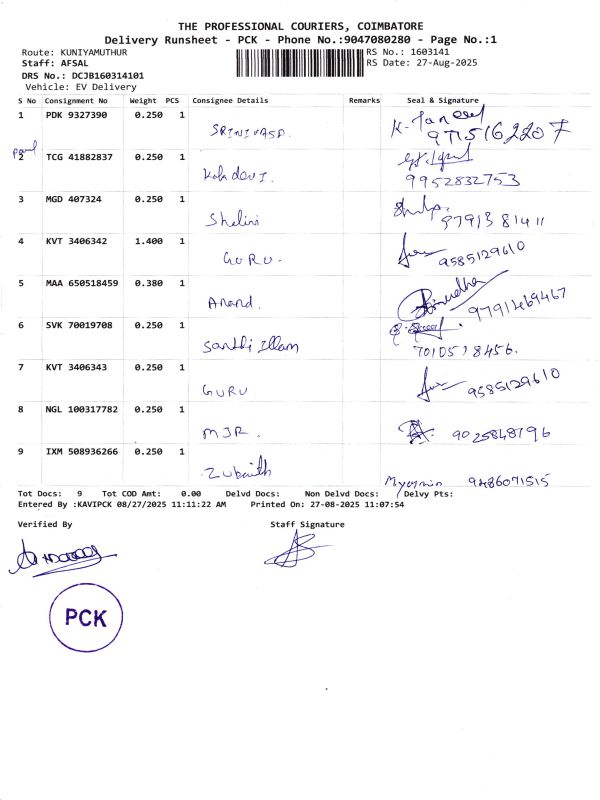 THE PROFESSIONAL COURIERS, COIMBATORE
Delivery Runsheet - PCK - Phone No.:9047080280 - Page No.:1
Route: KUNIYAMUTHUR RS No.: 1603141
Staff: AFSAL RS Date: 27-Aug-2025
DRS No.: DCJB160314101
Vehicle: EV Delivery
S No Consignment No Weight PCS Consignee Details Remarks Seal & Signature
1 PDK 9327390 0.250 1
9715162207
2 TCG 41882837 0.250 1
9952832753
3 MGD 407324 0.250 1 Shalini
4 KVT 3406342 1.400 1 GURU. 9585129610
5 MAA 650518459 0.380 1 Anand. 9791469467
6 SVK 70019708 0.250 1 Santhi Illam
7010518456.
7 KVT 3406343 0.250 1 GURU 9585129610
8 NGL 100317782 0.250 1 MJR. 9025848796
9 IXM 508936266 0.250 1 9486071515
Tot Docs: 9 Tot COD Amt: 0.00 Delvd Docs: Non Delvd Docs: Delvy Pts:
Entered By :KAVIPCK 08/27/2025 11:11:22 AM Printed On: 27-08-2025 11:07:54
Verified By Staff Signature
PCK